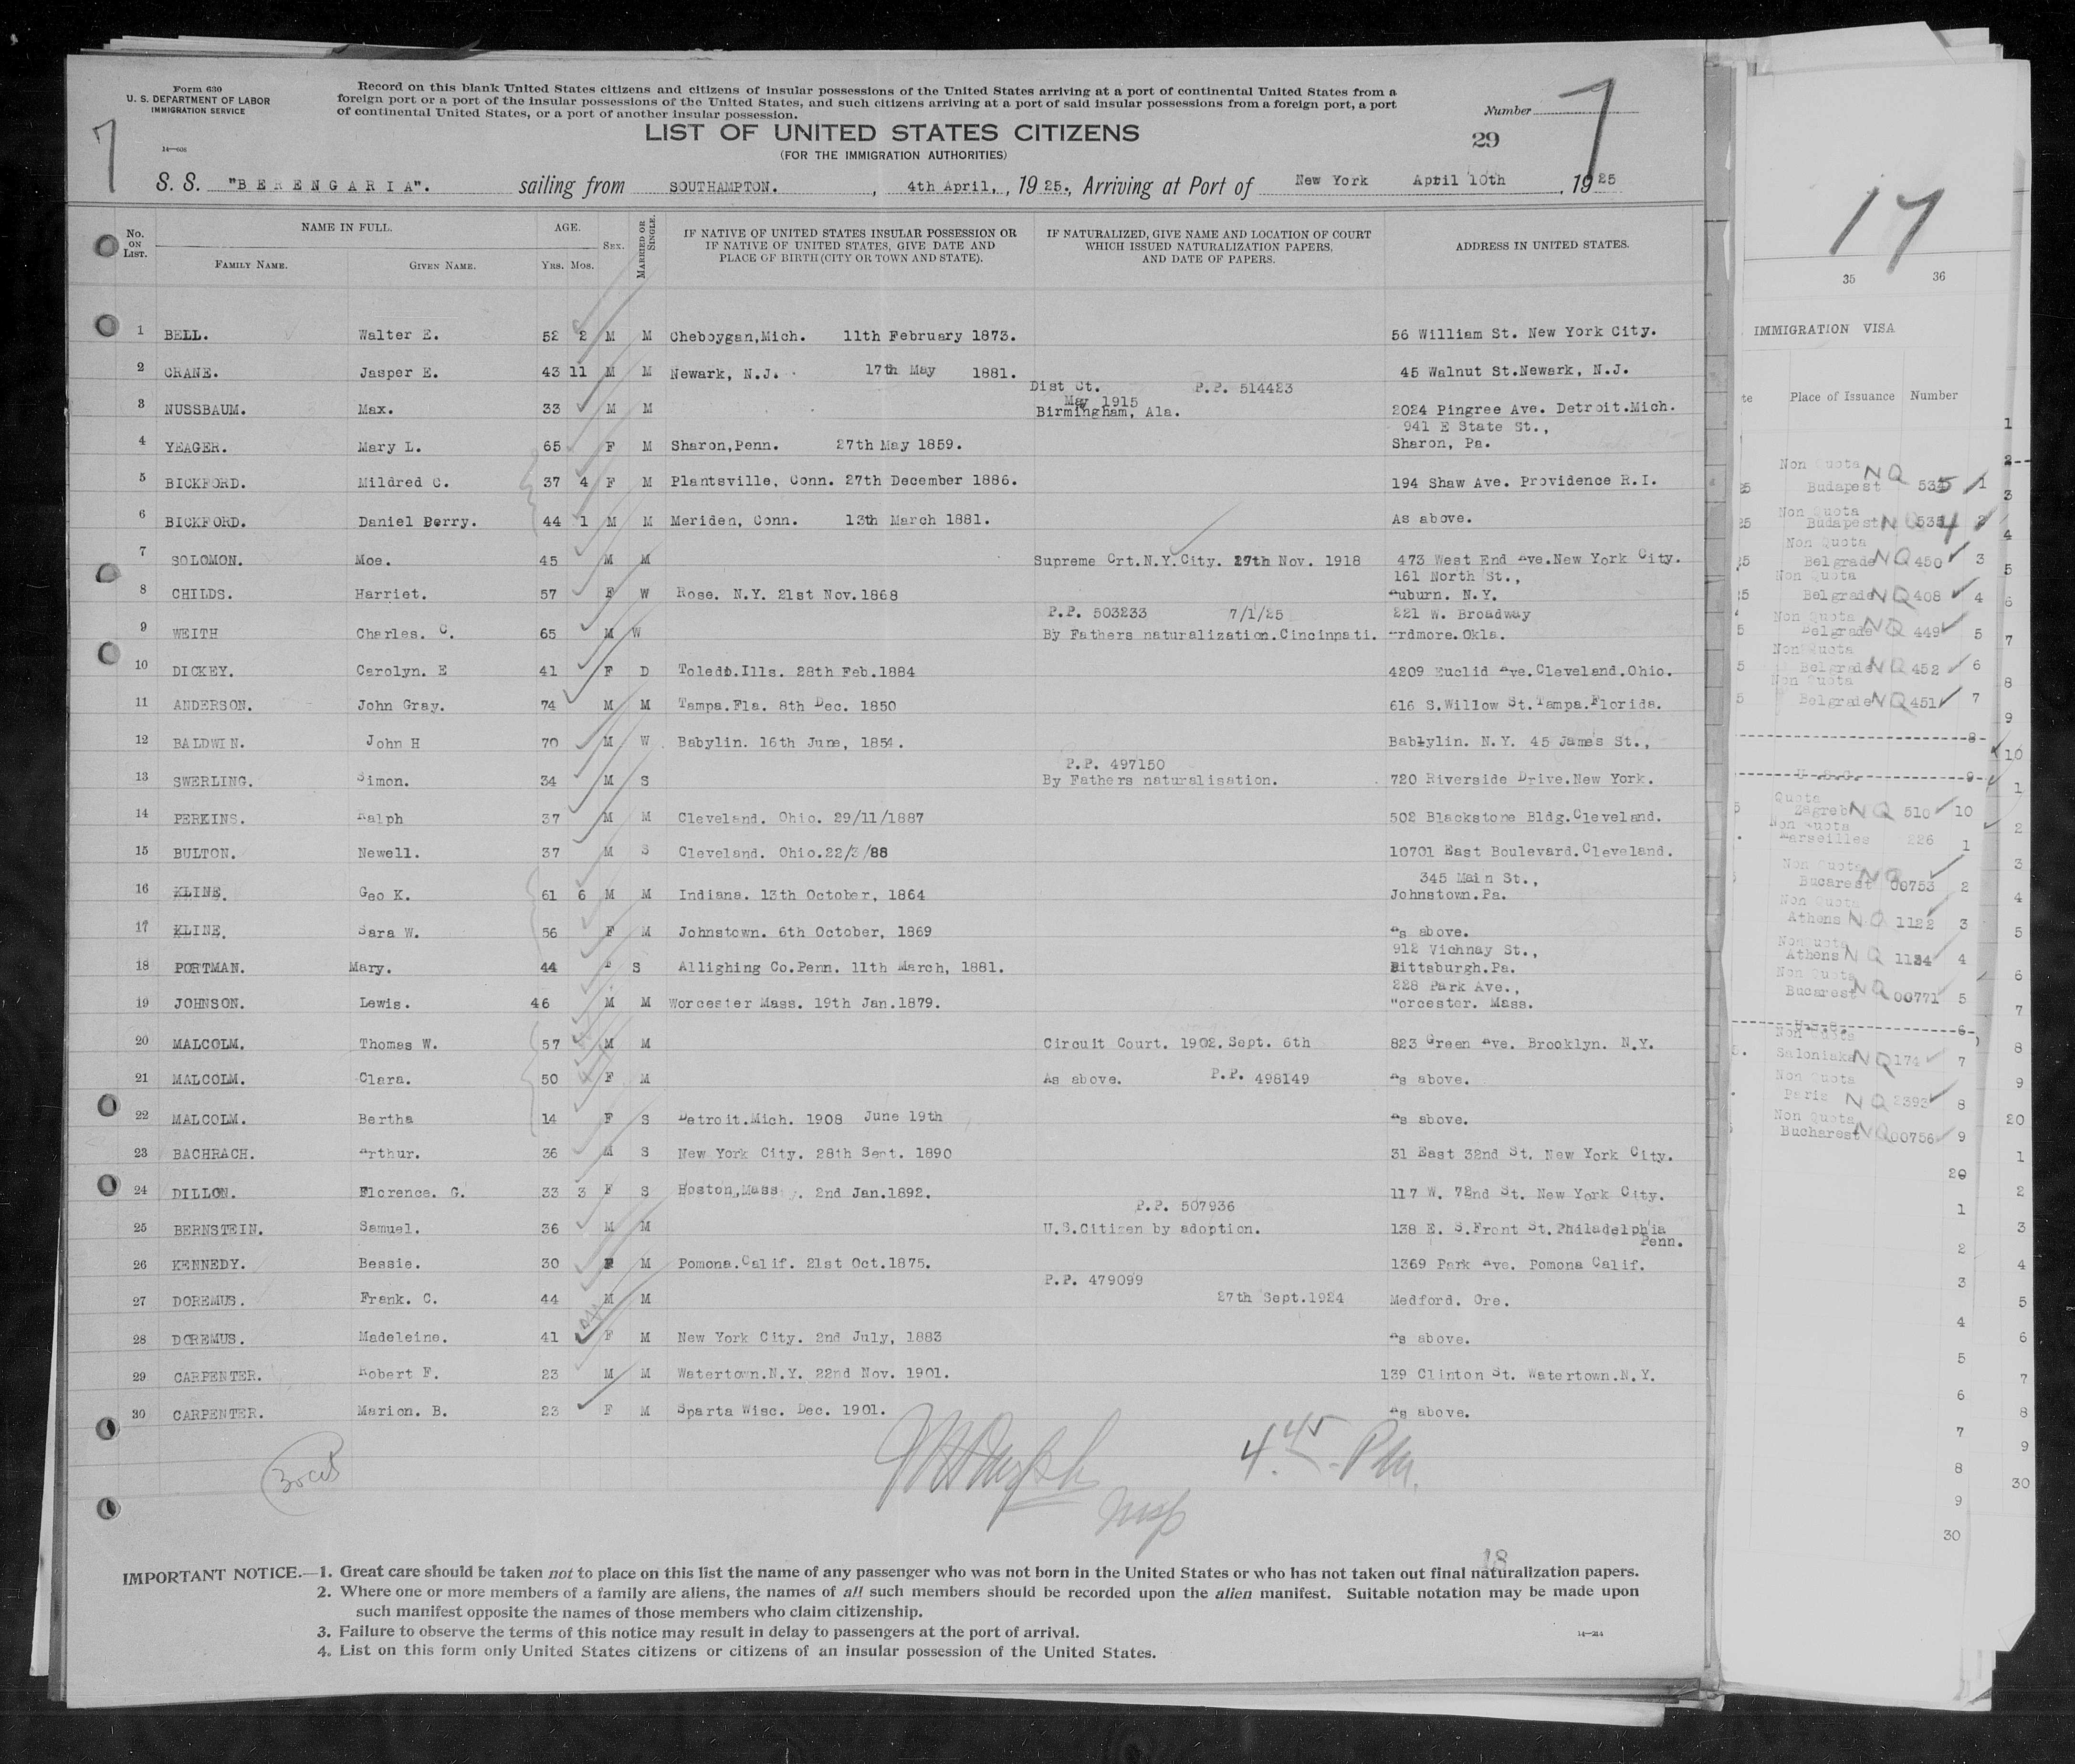 Form 630
U. S. DEPARTMENT OF LABOR
IMMIGRATION SERVICE
14—608
Record on this blank United States citizens and citizens of insular possessions of the United States arriving at a port of continental United States from a
foreign port or a port of the insular possessions of the United States, and such citizens arriving at a port of said insular possessions from a foreign port, a port
of continental United States, or a port of another insular possession.
Number 7
7
LIST OF UNITED STATES CITIZENS
29
(FOR THE IMMIGRATION AUTHORITIES)
S. S. "BERENGARIA". sailing from SOUTHAMPTON. , 4th April, , 1925., Arriving at Port of New York April 10th , 1925
No. ON LIST. NAME IN FULL. FAMILY NAME. GIVEN NAME. AGE. YRS. MOS. SEX. MARRIED OR SINGLE. IF NATIVE OF UNITED STATES INSULAR POSSESSION OR IF NATIVE OF UNITED STATES, GIVE DATE AND PLACE OF BIRTH (CITY OR TOWN AND STATE). IF NATURALIZED, GIVE NAME AND LOCATION OF COURT WHICH ISSUED NATURALIZATION PAPERS, AND DATE OF PAPERS. ADDRESS IN UNITED STATES.
1 BELL. Walter E. 52 2 M M Cheboygan,Mich. 11th February 1873. 56 William St. New York City.
2 CRANE. Jasper E. 43 11 M M Newark, N.J. 17th May 1881. 45 Walnut St.Newark, N.J.
Dist Ct. P.P. 514423
May 1915
3 NUSSBAUM. Max. 33 M M Birmingham, Ala. 2024 Pingree Ave. Detroit.Mich.
941 E State St.,
4 YEAGER. Mary L. 65 F M Sharon,Penn. 27th May 1859. Sharon, Pa.
5 BICKFORD. Mildred C. 37 4 F M Plantsville, Conn. 27th December 1886. 194 Shaw Ave. Providence R.I.
6 BICKFORD. Daniel Berry. 44 1 M M Meriden, Conn. 13th March 1881. As above.
7 SOLOMON. Moe. 45 M M Supreme Crt.N.Y.City. 27th Nov. 1918 473 West End Ave.New York City.
161 North St.,
8 CHILDS. Harriet. 57 F W Rose. N.Y. 21st Nov.1868 Auburn. N.Y.
P.P. 503233 7/1/25 221 W. Broadway
9 WEITH Charles. C. 65 M W By Fathers naturalization.Cincinnati. Ardmore.Okla.
10 DICKEY. Carolyn. E 41 F D Toledo.Ills. 28th Feb.1884 4209 Euclid Ave.Cleveland.Ohio.
11 ANDERSON. John Gray. 74 M M Tampa.Fla. 8th Dec. 1850 616 S.Willow St.Tampa.Florida.
12 BALDWIN. John H 70 M W Babylin. 16th June, 1854. Bablylin. N.Y. 45 James St.,
P.P. 497150
13 SWERLING. Simon. 34 M S By Fathers naturalisation. 720 Riverside Drive.New York.
14 PERKINS. Ralph 37 M M Cleveland. Ohio. 29/11/1887 502 Blackstone Bldg.Cleveland.
15 BULTON. Newell. 37 M S Cleveland. Ohio.22/3/88 10701 East Boulevard.Cleveland.
345 Main St.,
16 KLINE. Geo K. 61 6 M M Indiana. 13th October, 1864 Johnstown.Pa.
17 KLINE. Sara W. 56 F M Johnstown. 6th October, 1869 As above.
912 Vichnay St.,
18 PORTMAN. Mary. 44 F S Allighing Co.Penn. 11th March, 1881. Pittsburgh.Pa.
228 Park Ave.,
19 JOHNSON. Lewis. 46 M M Worcester Mass. 19th Jan.1879. Worcester. Mass.
20 MALCOLM. Thomas W. 57 M M Circuit Court. 1902.Sept. 6th 823 Green Ave. Brooklyn. N.Y.
21 MALCOLM. Clara. 50 F M As above. P.P. 498149 As above.
22 MALCOLM. Bertha 14 F S Detroit.Mich. 1908 June 19th As above.
23 BACHRACH. Arthur. 36 M S New York City. 28th Sept. 1890 31 East 32nd St. New York City.
24 DILLON. Florence. G. 33 3 F S Boston,Mass. 2nd Jan.1892. 117 W. 72nd St. New York City.
P.P. 507936
25 BERNSTEIN. Samuel. 36 M M U.S.Citizen by adoption. 138 E. S.Front St.Philadelphia
Penn.
26 KENNEDY. Bessie. 30 F M Pomona.Calif. 21st Oct.1875. 1369 Park Ave. Pomona Calif.
P.P. 479099
27 DOREMUS. Frank. C. 44 M M 27th Sept.1924 Medford. Ore.
28 DOREMUS. Madeleine. 41 F M New York City. 2nd July, 1883 As above.
29 CARPENTER. Robert F. 23 M M Watertown.N.Y. 22nd Nov. 1901. 139 Clinton St. Watertown.N.Y.
30 CARPENTER. Marion. B. 23 F M Sparta Wisc. Dec. 1901. As above.
4.45 Pm.
18
IMPORTANT NOTICE.—1. Great care should be taken not to place on this list the name of any passenger who was not born in the United States or who has not taken out final naturalization papers.
2. Where one or more members of a family are aliens, the names of all such members should be recorded upon the alien manifest. Suitable notation may be made upon
such manifest opposite the names of those members who claim citizenship.
3. Failure to observe the terms of this notice may result in delay to passengers at the port of arrival.
4. List on this form only United States citizens or citizens of an insular possession of the United States.
14—214
17
35 36
IMMIGRATION VISA
Place of Issuance Number
Non Quota NQ
Budapest 5355 1
Non Quota
Budapest NQ 5354 2
Non Quota
Belgrade NQ 450 3
Non Quota
Belgrade NQ 408 4
Non Quota
Belgrade NQ 449 5
Non Quota
Belgrade NQ 452 6
Non Quota
Belgrade NQ 451 7
8
9
Quota
Zagreb NQ 510 10
Non Quota
Marseilles 226 1
Non Quota NQ
Bucarest 00753 2
Non Quota
Athens NQ 1122 3
Non Quota
Athens NQ 1134 4
Non Quota
Bucarest NQ 00771 5
U.S.C. 6
Non Quota
Saloniska NQ 174 7
Non Quota
Paris NQ 2393 8
Non Quota
Bucharest NQ 00756 9
20
1
2
3
4
5
6
7
8
9
30
1
2
3
4
5
6
7
8
9
10
1
2
3
4
5
6
7
8
9
20
1
2
3
4
5
6
7
8
9
30